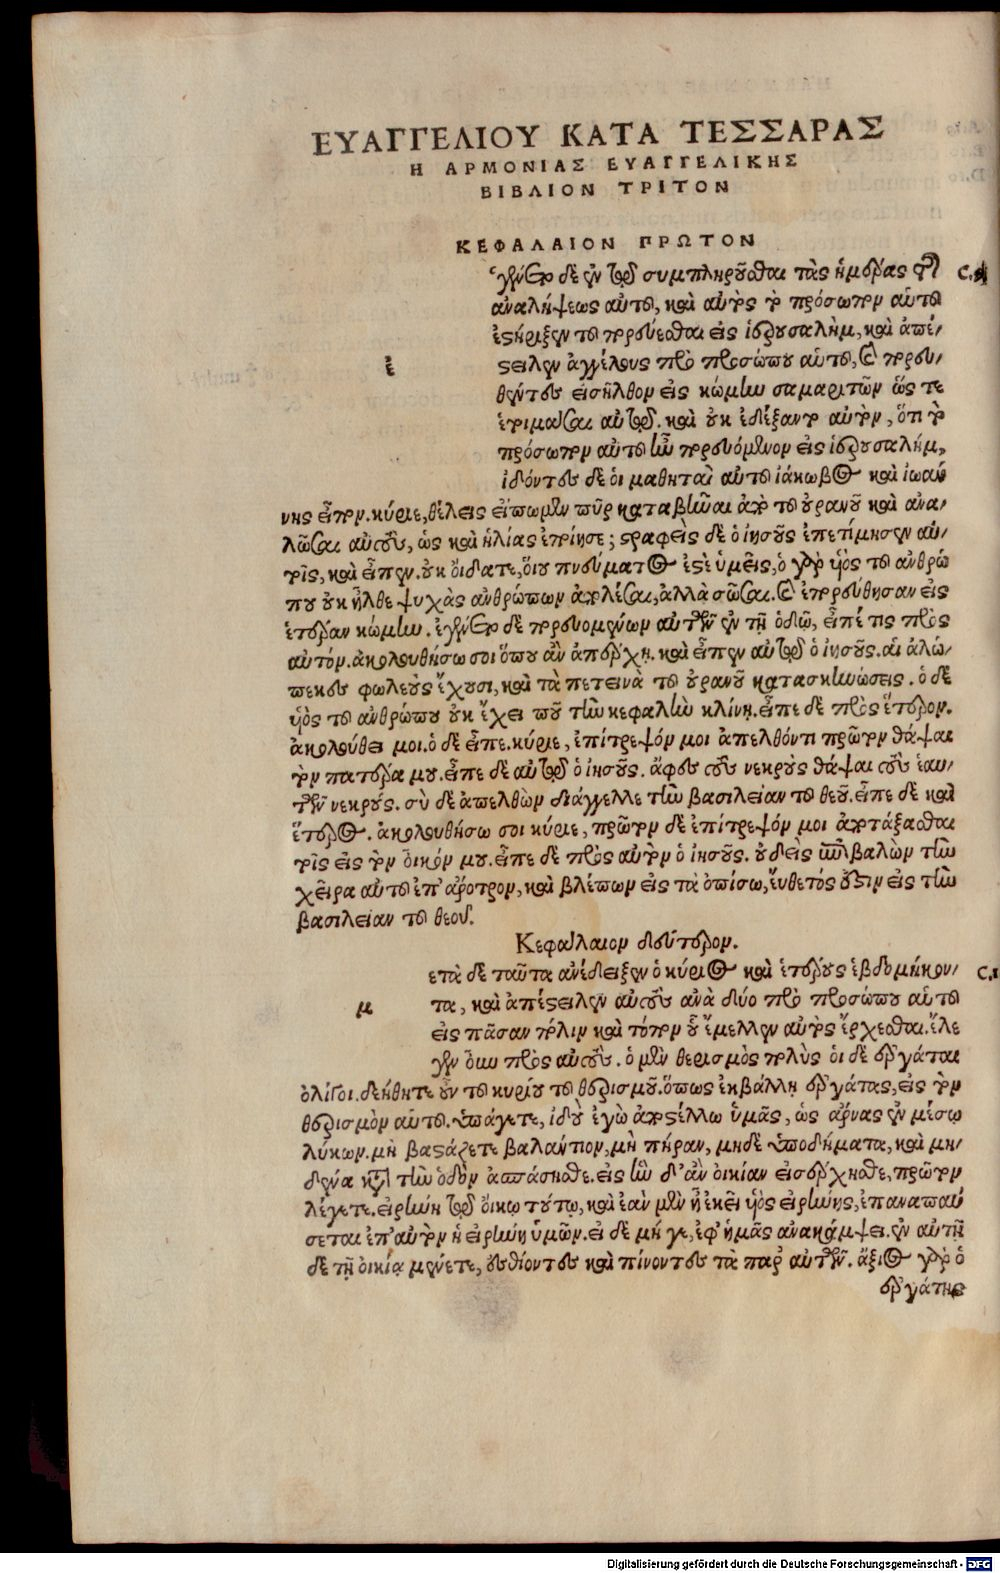 ΕΥΑΓΓΕΛΙΟΥ ΚΑΤΑ ΤΕΣΣΑΡΑΣ
Η ΑΡΜΟΝΙΑΣ ΕΥΑΓΓΕΛΙΚΗΣ
ΒΙΒΛΙΟΝ ΤΡΙΤΟΝ
ΚΕΦΑΛΑΙΟΝ ΠΡΩΤΟΝ
ἐ
γένετο δὲ ἐν τῷ συμπληροῦσθαι τὰς ἡμέρας τῆς C.
ἀναλήψεως αὐτοῦ, καὶ αὐτὸς τὸ πρόσωπον αὐτοῦ
ἐστήριξεν τοῦ πορεύεσθαι εἰς ἱερουσαλὴμ, καὶ ἀπέ/
στειλεν ἀγγέλους πρὸ προσώπου αὐτοῦ, καὶ πορευ/
θέντες εἰσῆλθον εἰς κώμην σαμαριτῶν ὥς τε
ἑτοιμάσαι αὐτῷ. καὶ οὐκ ἐδέξαντο αὐτὸν, ὅτι τὸ
πρόσωπον αὐτοῦ ἦν πορευόμενον εἰς ἱερουσαλήμ,
ἰδόντες δὲ οἱ μαθηταὶ αὐτοῦ ἰάκωβος καὶ ἰωάν
νης εἶπον. κύριε, θέλεις εἴπωμεν πῦρ καταβῆναι ἀπὸ τοῦ οὐρανοῦ καὶ ἀνα/
λῶσαι αὐτοὺς, ὡς καὶ ἡλίας ἐποίησε; στραφεὶς δὲ ὁ ἰησοῦς ἐπετίμησεν αὐ/
τοῖς, καὶ εἶπεν. οὐκ οἴδατε, οἵου πνεύματος ἐστὲ ὑμεῖς, ὁ γὰρ υἱὸς τοῦ ἀνθρώ
που οὐκ ἦλθε ψυχὰς ἀνθρώπων ἀπολέσαι, ἀλλὰ σῶσαι. καὶ ἐπορεύθησαν εἰς
ἑτέραν κώμην. ἐγένετο δὲ πορευομένων αὐτῶν ἐν τῇ ὁδῷ, εἶπέ τις πρὸς
αὐτόν. ἀκολουθήσω σοι ὅπου ἂν ἀπέρχῃ. καὶ εἶπεν αὐτῷ ὁ ἰησοῦς. αἱ ἀλώ/
πεκες φωλεοὺς ἔχουσι, καὶ τὰ πετεινὰ τοῦ οὐρανοῦ κατασκηνώσεις. ὁ δὲ
υἱὸς τοῦ ἀνθρώπου οὐκ ἔχει ποῦ τὴν κεφαλὴν κλίνῃ. εἶπε δὲ πρὸς ἕτερον.
ἀκολούθει μοι. ὁ δὲ εἶπε. κύριε, ἐπίτρεψόν μοι ἀπελθόντι πρῶτον θάψαι
τὸν πατέρα μου. εἶπε δὲ αὐτῷ ὁ ἰησοῦς. ἄφες τοὺς νεκροὺς θάψαι τοὺς ἑαυ/
τῶν νεκρούς. σὺ δὲ ἀπελθὼν διάγγελλε τὴν βασιλείαν τοῦ θεοῦ. εἶπε δὲ καὶ
ἕτερος. ἀκολουθήσω σοι κύριε, πρῶτον δὲ ἐπίτρεψόν μοι ἀποτάξασθαι
τοῖς εἰς τὸν οἶκόν μου. εἶπε δὲ πρὸς αὐτὸν ὁ ἰησοῦς. οὐδεὶς ἐπιβαλὼν τὴν
χεῖρα αὐτοῦ ἐπ' ἄροτρον, καὶ βλέπων εἰς τὰ ὀπίσω, εὔθετός ἐστιν εἰς τὴν
βασιλείαν τοῦ θεοῦ.
Κεφάλαιον δεύτερον.
μ
ετὰ δὲ ταῦτα ἀνέδειξεν ὁ κύριος καὶ ἑτέρους ἑβδομήκον/ C.1
τα, καὶ ἀπέστειλεν αὐτοὺς ἀνὰ δύο πρὸ προσώπου αὐτοῦ
εἰς πᾶσαν πόλιν καὶ τόπον οὗ ἔμελλεν αὐτὸς ἔρχεσθαι. ἔλε
γεν οὖν πρὸς αὐτούς. ὁ μὲν θερισμὸς πολὺς οἱ δὲ ἐργάται
ὀλίγοι. δεήθητε οὖν τοῦ κυρίου τοῦ θερισμοῦ. ὅπως ἐκβάλλῃ ἐργάτας, εἰς τὸν
θερισμὸν αὐτοῦ. ὑπάγετε, ἰδοὺ ἐγὼ ἀποστέλλω ὑμᾶς, ὡς ἄρνας ἐν μέσῳ
λύκων. μὴ βαστάζετε βαλάντιον, μὴ πήραν, μηδὲ ὑποδήματα, καὶ μη/
δένα κατὰ τὴν ὁδὸν ἀσπάσησθε. εἰς ἣν δ' ἂν οἰκίαν εἰσέρχησθε, πρῶτον
λέγετε. εἰρήνη τῷ οἴκῳ τούτῳ, καὶ ἐὰν μὲν ᾖ ἐκεῖ υἱὸς εἰρήνης, ἐπαναπαύ
σεται ἐπ' αὐτὸν ἡ εἰρήνη ὑμῶν. εἰ δὲ μή γε, ἐφ' ἡμᾶς ἀνακάμψει. ἐν αὐτῇ
δὲ τῇ οἰκίᾳ μένετε, ἐσθίοντες καὶ πίνοντες τὰ παρ' αὐτῶν. ἄξιος γὰρ ὁ
ἐργάτης
Digitalisierung gefördert durch die Deutsche Forschungsgemeinschaft - DFG